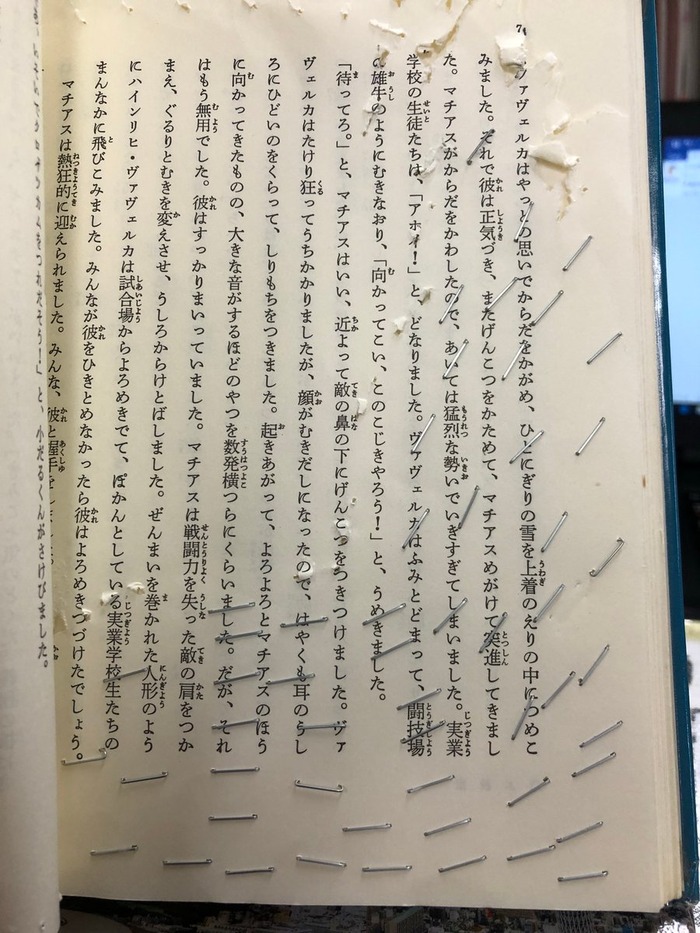 ヴァヴェルカはやっとの思いでからだをかがめ、ひとにぎりの雪を上着のえりの中につめこ
みました。それで彼は正気づき、またげんこつをかためて、マチアスめがけて突進してきまし
た。マチアスがからだをかわしたので、あいては猛烈な勢いでいきすぎてしまいました。実業
学校の生徒たちは、「アホイ！」と、どなりました。ヴァヴェルカはふみとどまって、闘技場
の雄牛のようにむきなおり、「向かってこい、このこじきやろう！」と、うめきました。
「待ってろ。」と、マチアスはいい、近よって敵の鼻の下にげんこつをつきつけました。ヴァ
ヴェルカはたけり狂ってうちかかりましたが、顔がむきだしになったので、はやくも耳のうし
ろにひどいのをくらって、しりもちをつきました。起きあがって、よろよろとマチアスのほう
に向かってきたものの、大きな音がするほどのやつを数発横つらにくらいました。だが、それ
はもう無用でした。彼はすっかりまいっていました。マチアスは戦闘力を失った敵の肩をつか
まえ、ぐるりとむきを変えさせ、うしろからけとばしました。ぜんまいを巻かれた人形のよう
にハインリヒ・ヴァヴェルカは試合場からよろめきでて、ぽかんとしている実業学校生たちの
まんなかに飛びこみました。みんなが彼をひきとめなかったら彼はよろめきつづけたでしょう。
マチアスは熱狂的に迎えられました。みんな、彼と握手をしました。
と、小だるくんがさけびました。